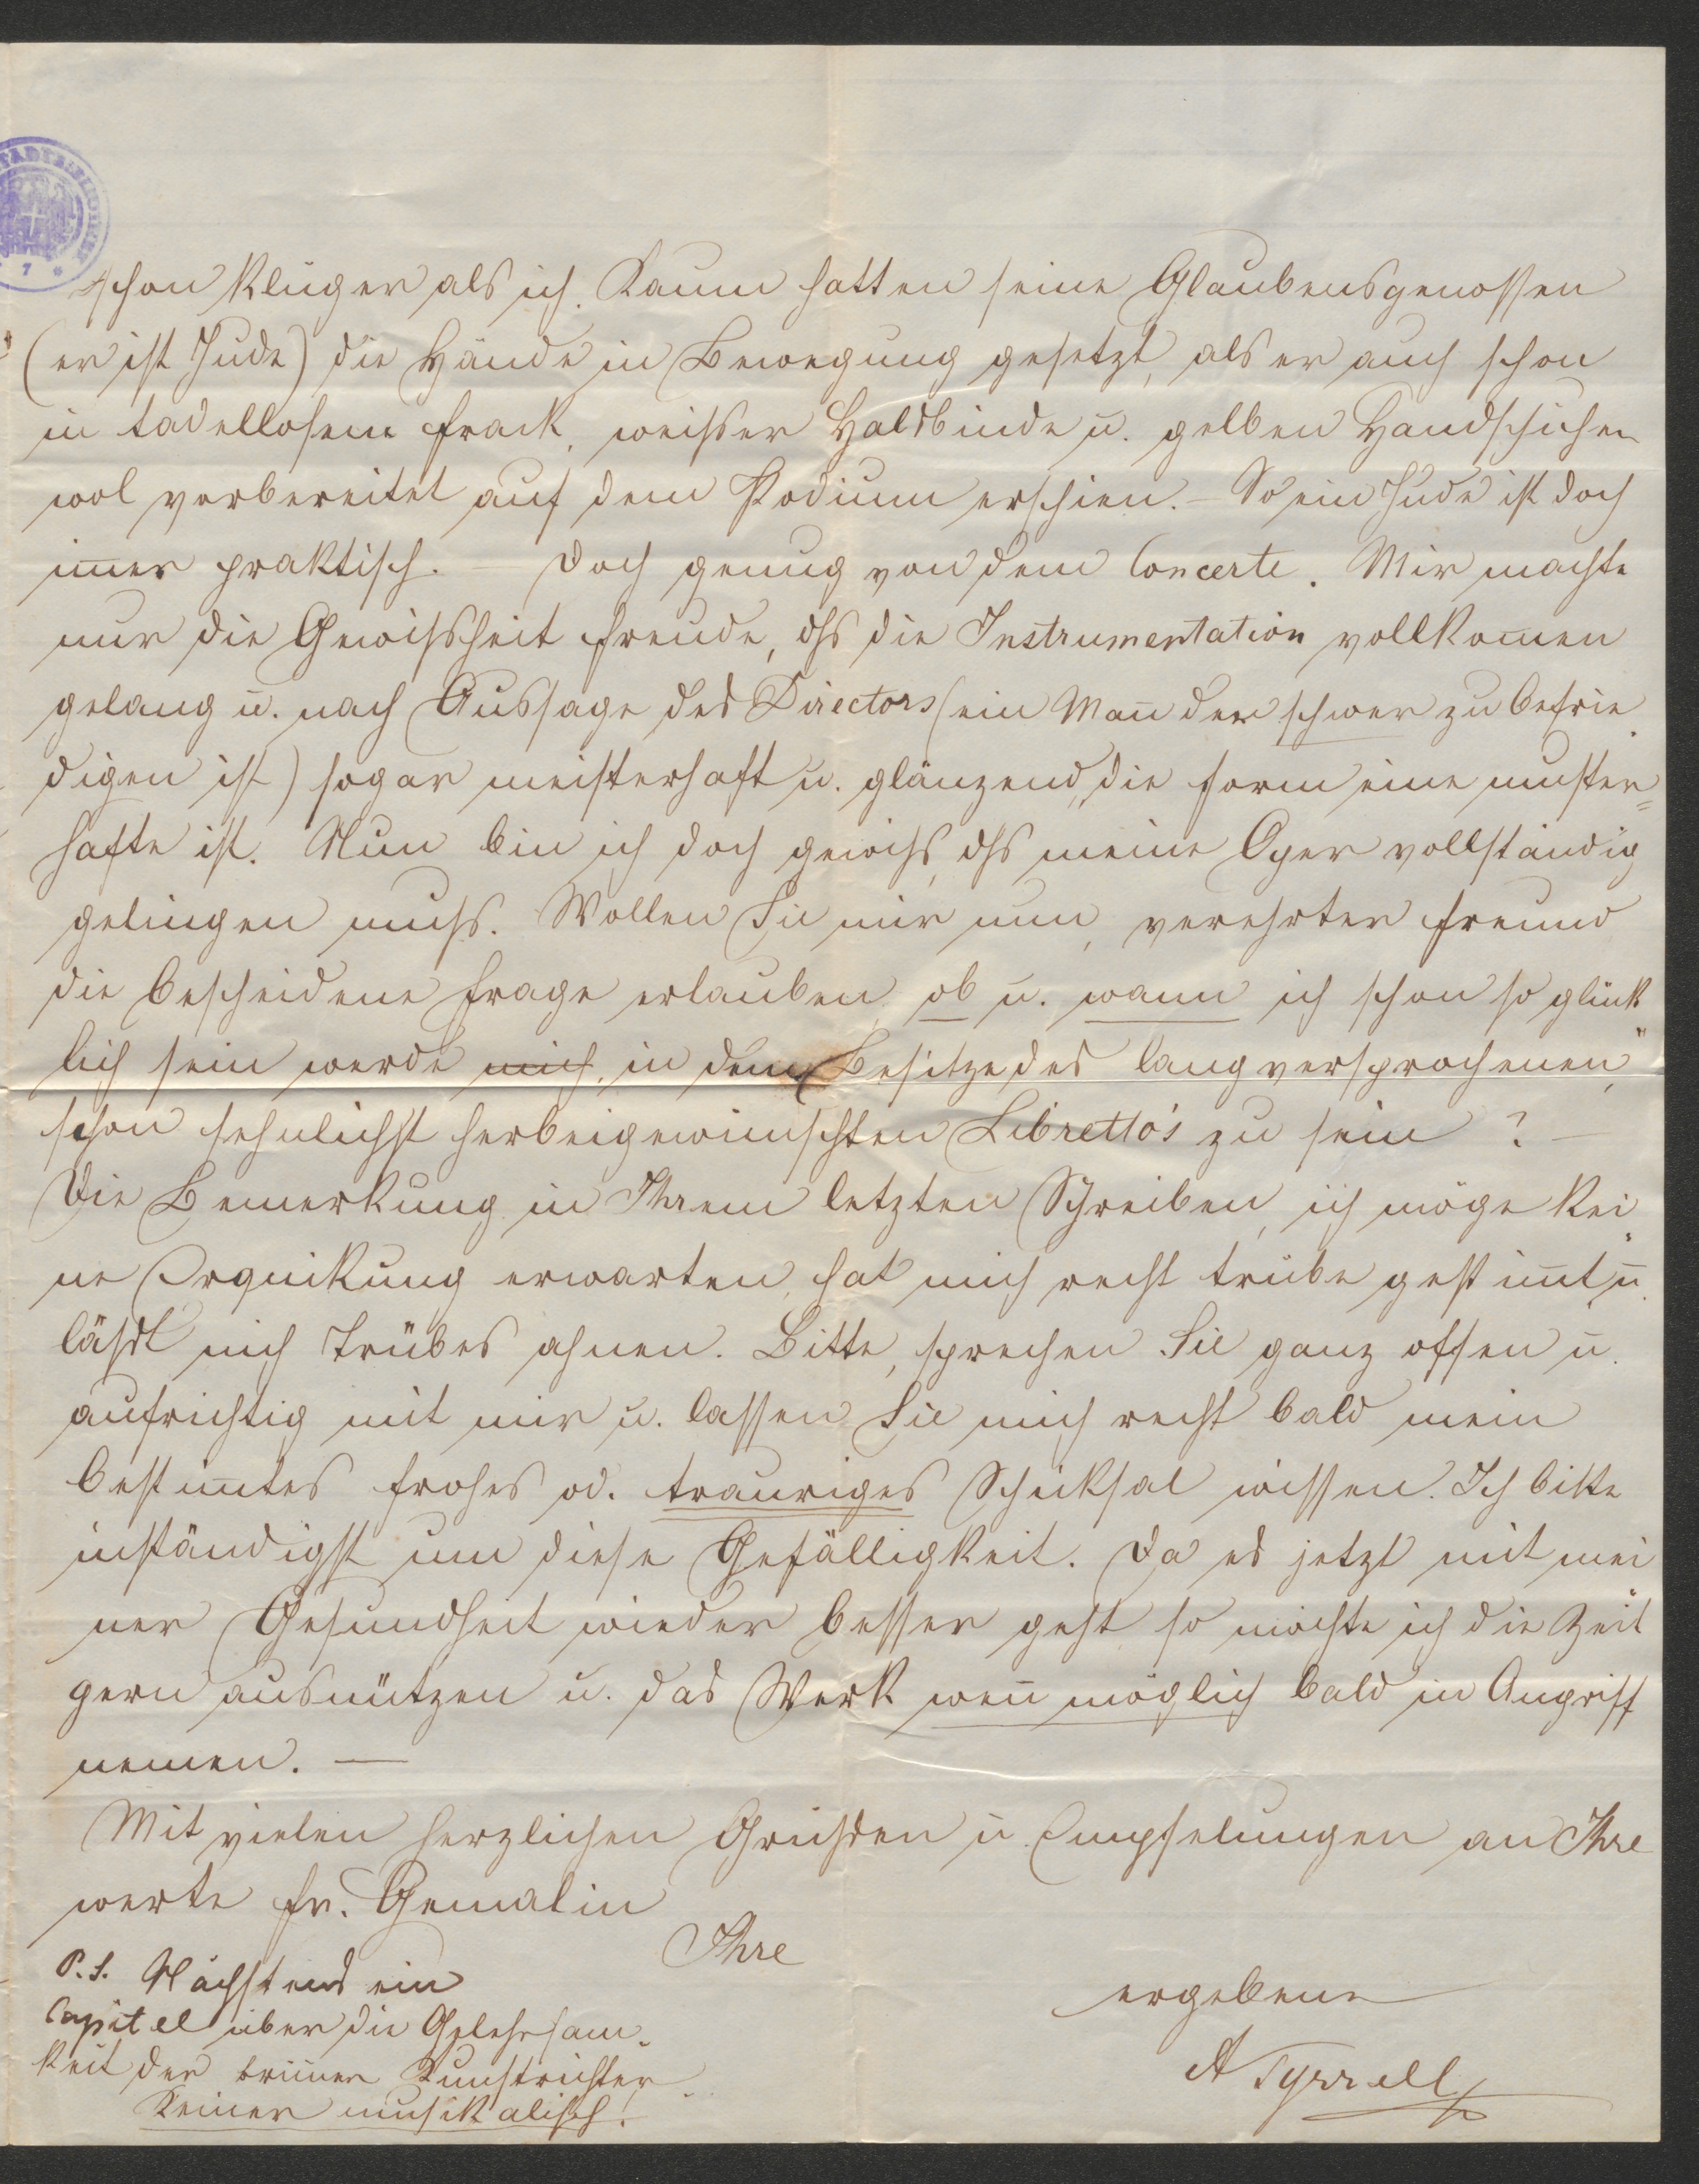 schon klüger als ich. Kaum hatten seine Glaubensgenossen
(er ist Jude) die Hände in Bewegung gesetzt, als er auch schon
in tadellosem Frack, weisser Halsbinde u. gelben Handschuhen
wol vorbereitet auf dem Podium erschien. – So ein Jude ist doch
im̅er praktisch. – Doch genug von dem Concerte. Mir machte
nur die Gewissheit Freude, dſs die Instrumentation vollkom̅en
gelang u. nach Aussage des Directors (ein Man̅ der schwer zu befrie
digen ist) sogar meisterhaft u. glänzend, die Form eine muster=
hafte ist. Nun bin ich doch gewiss, dſs meine Oper vollständig
gelingen muss. Wollen Sie mir nun, verehrter Freund
die bescheidene Frage erlauben, ob u. wann ich schon so glück
lich sein werde mich, in dem Besitze des lang versprochenen,
schon sehnlichst herbeigewünschten Libretto's zu sein? –
Die Bemerkung in Ihrem letzten Schreiben, ich möge kei
ne Erquikung erwarten, hat mich recht trübe gestim̅t u.
lässt mich Trübes ahnen. Bitte, sprechen Sie ganz offen u.
aufrichtig mit mir u. lassen Sie mich recht bald mein
bestim̅tes frohes od. trauriges Schiksal wissen. Ich bitte
inständigst um diese Gefälligkeit. Da es jetzt mit mei
ner Gesundheit wieder besser geht so möchte ich die Zeit
gern ausnützen u. das Werk wen̅ möglich bald in Angriff
nemen. —
Mit vielen herzlichen Grüssen u. Empfelungen an Ihre
werte Fr. Gemalin
Ihre
ergebene
A Tyrrell
P.S. Nächstens ein
Capitel über die Gelehrsam-
keit der brün̅er Kunstrichter.
Keiner musikalisch!
7